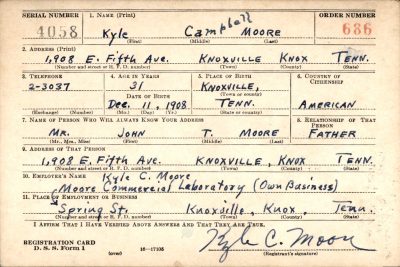 SERIAL NUMBER 1. NAME (Print) ORDER NUMBER
4058 Kyle Campbell MOORE 686
(First) (Middle) (Last)
2. ADDRESS (Print)
1,908 E. Fifth Ave. KNOXVILLE KNOX TENN.
(Number and street or R. F. D. number) (Town) (County) (State)
3. TELEPHONE 4. AGE IN YEARS 5. PLACE OF BIRTH 6. COUNTRY OF CITIZENSHIP
2-3037 31 KNOXVILLE,
DATE OF BIRTH (Town or county)
Dec. 11, 1908 TENN. AMERICAN
(Exchange) (Number) (Mo.) (Day) (Yr.) (State or country)
7. NAME OF PERSON WHO WILL ALWAYS KNOW YOUR ADDRESS 8. RELATIONSHIP OF THAT PERSON
MR. JOHN T. MOORE FATHER
(Mr., Mrs., Miss) (First) (Middle) (Last)
9. ADDRESS OF THAT PERSON
1,908 E. FIFTH AVE. KNOXVILLE, KNOX TENN.
(Number and street or R. F. D. number) (Town) (County) (State)
10. EMPLOYER'S NAME Kyle C. Moore
Moore Commercial Laboratory (Own Business)
11. PLACE OF EMPLOYMENT OR BUSINESS
Spring St. Knoxville, Knox, Tenn.
(Number and street or R. F. D. number) (Town) (County) (State)
I AFFIRM THAT I HAVE VERIFIED ABOVE ANSWERS AND THAT THEY ARE TRUE.
REGISTRATION CARD
D. S. S. Form 1 (over) 16-17105 Kyle C. Moore
(Registrant's signature)